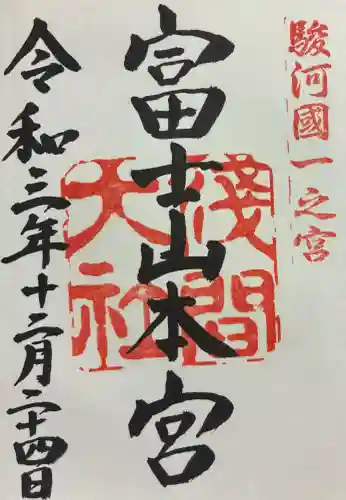 駿河國一之宮
富士山本宮
淺間大社
令和三年十二月二十四日